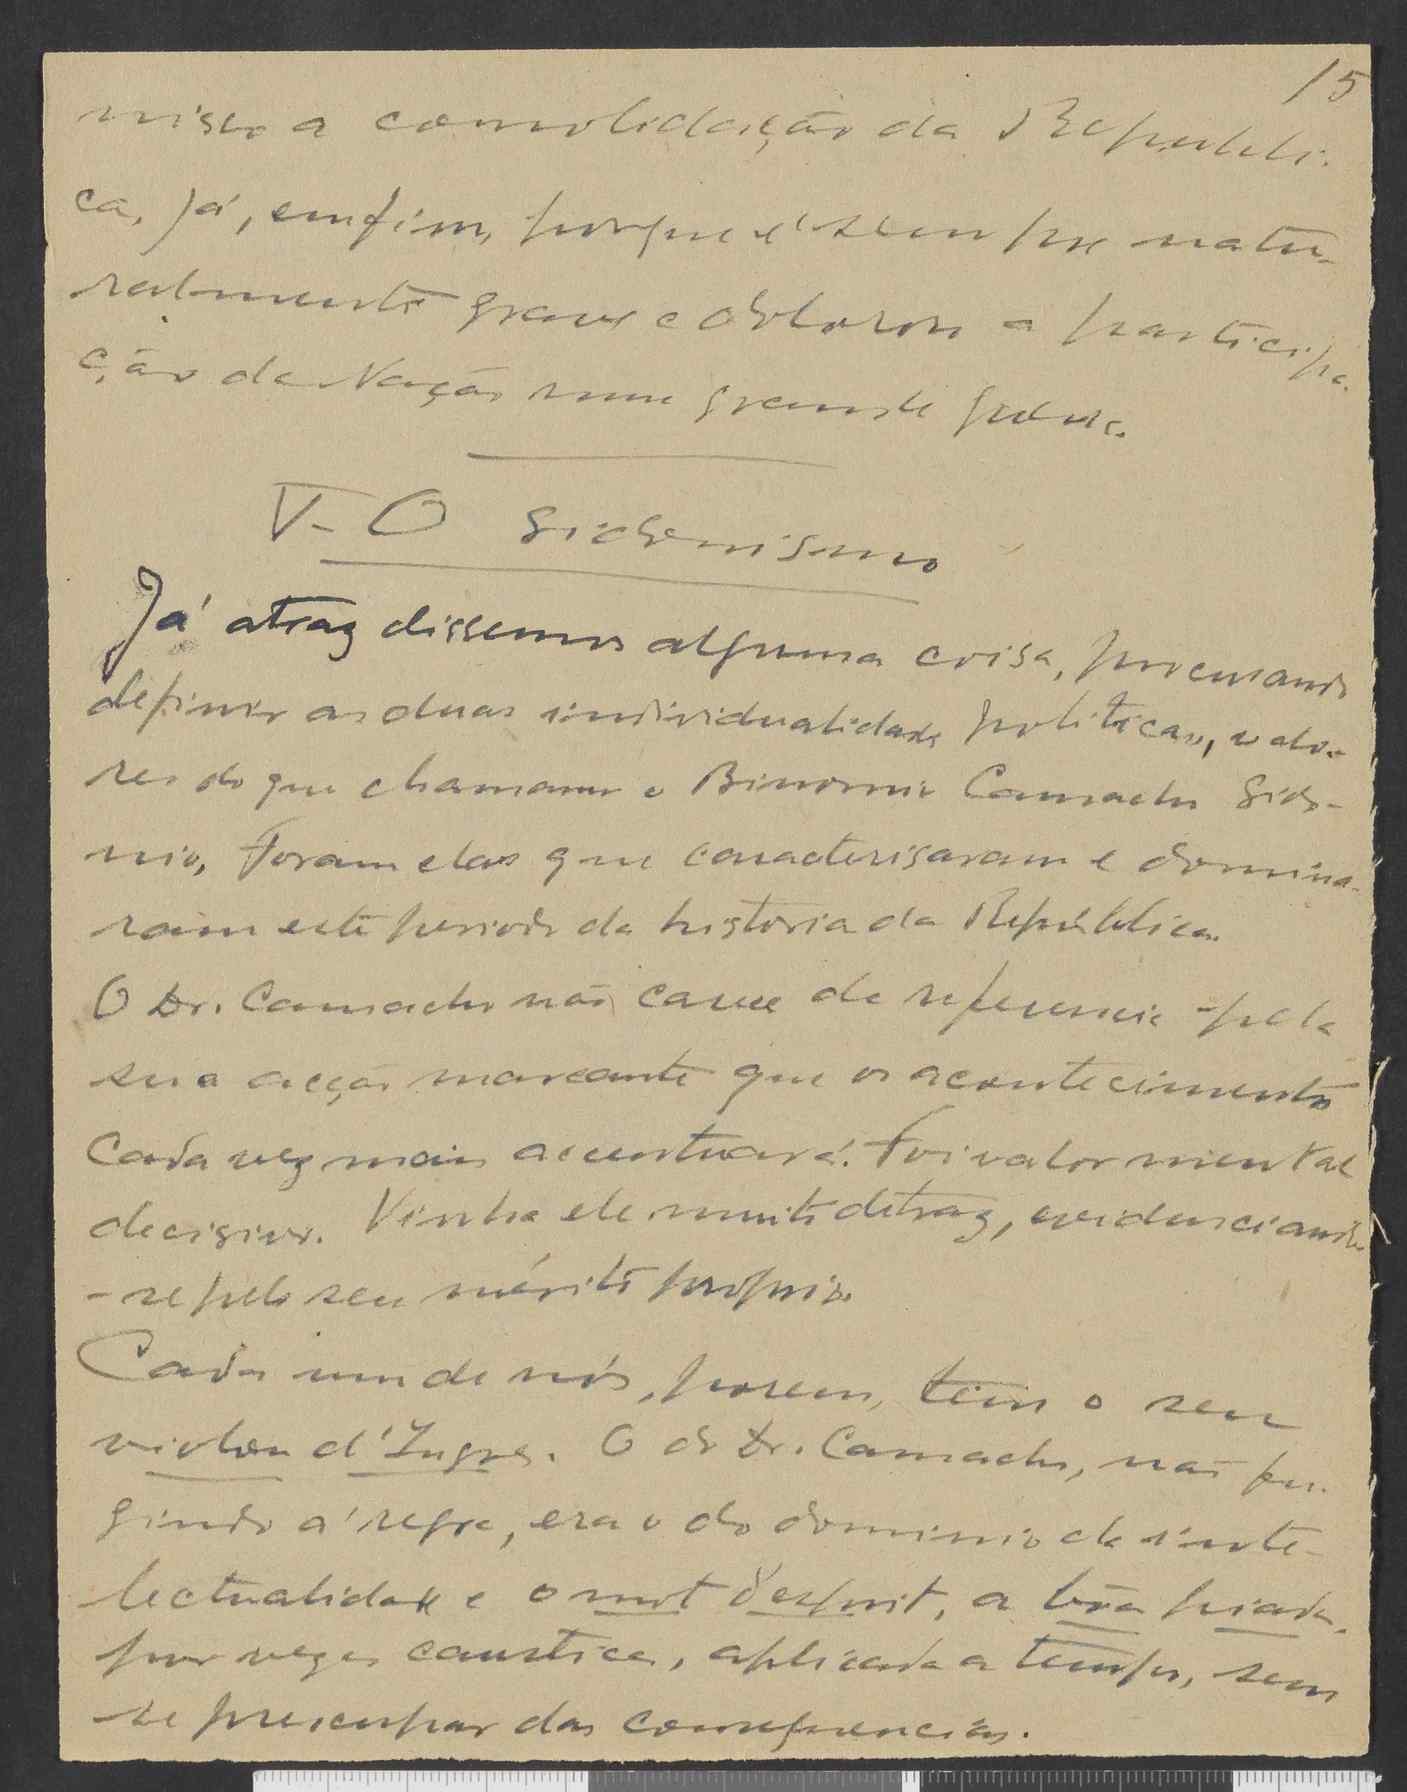 15
nisso a consolidação da Republi-
ca, já, emfim, porque é sempre natu-
ralmente grave e doloroso a participa-
ção da Nação numa grande guerra.
V- O Sidonismo
Já atraz dissemos alguma coisa, procurando
definir as duas individualidades politicas,
res do que chamamos o Binomio Camacho Sido-
nio. Foram elas que caracterisaram e domina-
ram este periodo da historia da República.
O Dr. Camacho não carece de referencia pela
sua acção marcante que os acontecimentos
cada vez mais accentuará. Foi valor mental
decisivo. Vinha ele muito detraz, evidenciando
-se pelo seu mérito proprio.
Cada um de nós, porem, tem o seu
violon d'Ingres. O do Dr. Camacho, não fu-
gindo á regra, era o do dominio da inte-
lectualidade e o mot d'esprit, a bôa piada,
por vezes caustica, aplicada a tempo, sem
se preocupar das consequencias.